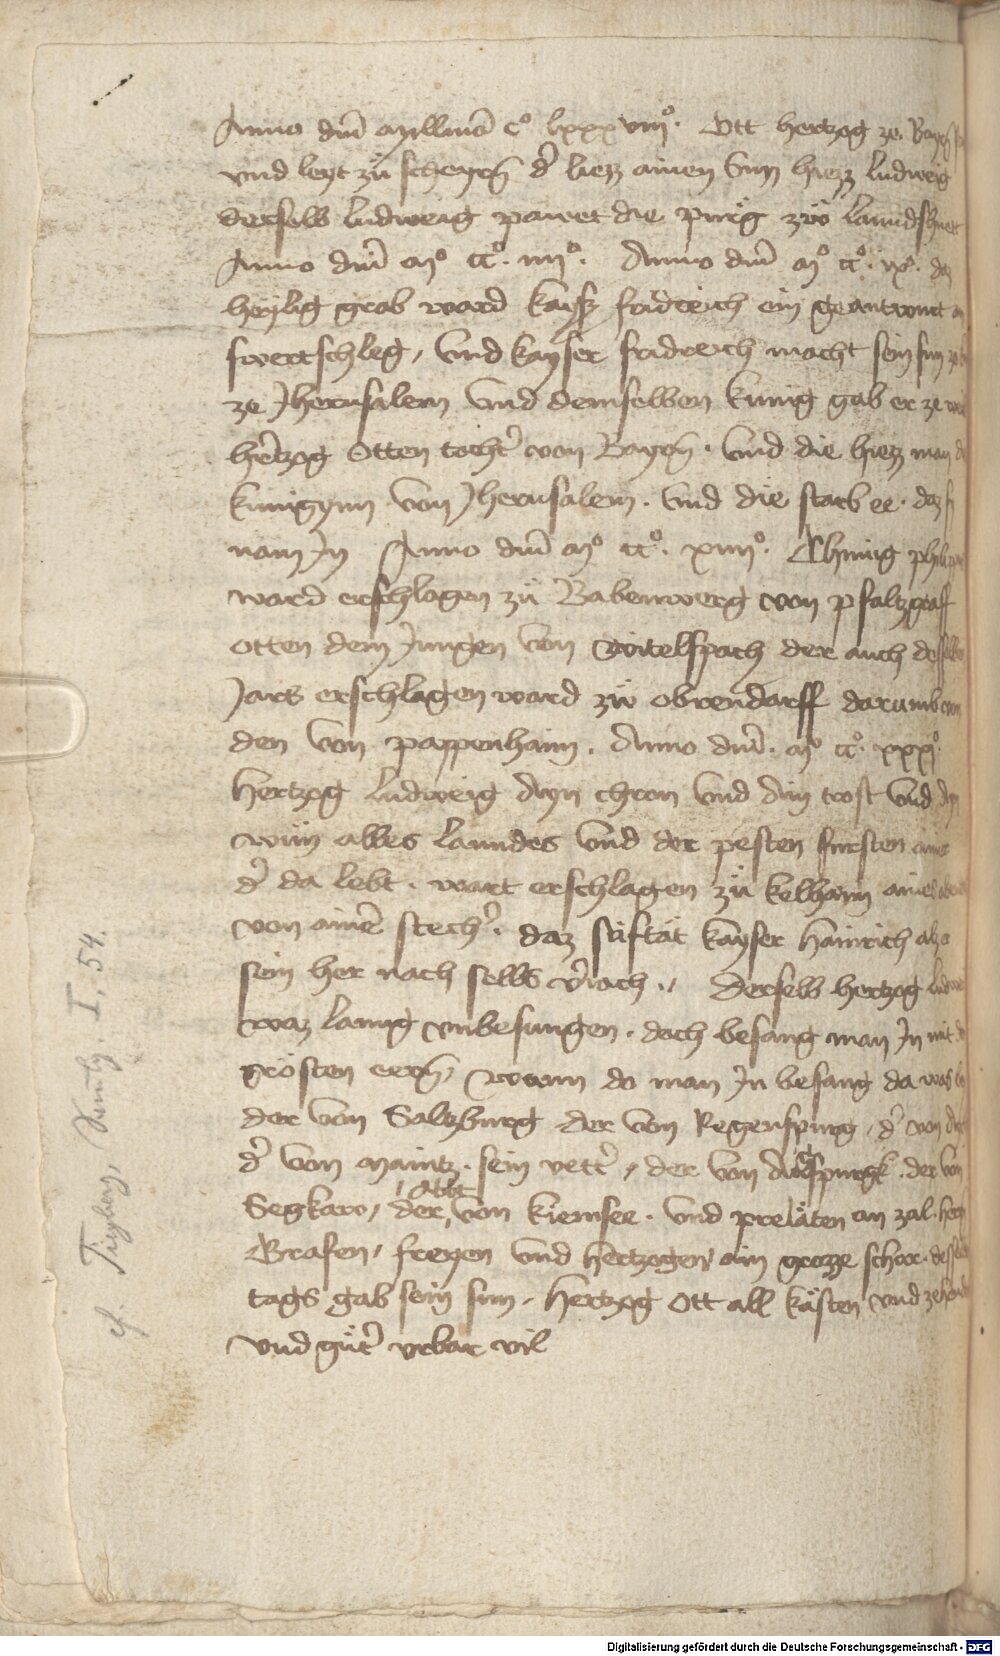 Anno dm̄ Myllmō cͦ lxxxviijͦ. Ott hertzog ze
vnd leyt zü scheyrn̄ d' liezz ainen Sun hiezz Ludweig
derselb Ludweig pawet die purg zw̎ Lanndshuet
Anno dm̄ Mͦ ccͦ. iiijͦ. Anno dm̄ Mͦ ccͦ. ixͦ. daz
heylig grab ward kayser fridreich ein geantwurt an
swertschleg, Vnd kayser fridreich macht sein sun
ze Jherusalem Vnd demselben kunig gab er ze
hertzog Otten tocht' von Bayrn̄. Vnd die hiezz man
kunigynn von Jherusalem. Vnd die starb ee. daz
nam Jn Anno dm̄ Mͦ ccͦ. xiiijͦ. Chunig
ward erschlagen zü Babenwerg von pfaltzgraff
otten dem Jungen von witelspach der auch desselben
Jars erschlagen ward zw̎ obrendarff darumb
den von pappenhaim. Anno dm̄. Mͦ ccͦ. xxxjͦ.
hertzog Ludweig Ayn chron vnd Ain trost vnd
wun alles lanndes Vnd der pesten fursten ainer
d' da lebt. wart erschlagen zü kelhaim aines
von ainē stech'. daz stiftät kayser Hainrich alz
sein her nach selbs v'iach., derselb hertzog
waz lanng vnbesungen. doch besang man Jn mit
grösten ern̄, wann do man Jn besang da was
der von Saltzburg der von Regenspurg, d' von
d' von Maintz. sein vett', der von Auspurgk. der von
Segkaw, der Abbt von kiemsee. Vnd prelaten an zal.
Grafen, freyen vnd hertzogen, ain grozze schar.
tags gab sein sun, hertzog Ott all kästen vnd
vnd güt' vrbar vil
cf. I, 54.
Digitalisierung gefördert durch die Deutsche Forschungsgemeinschaft - DFG